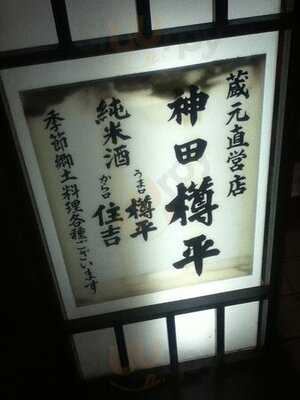 蔵元直営店
神田樽平
うま口 樽平
純米酒 から口 住吉
季節郷土料理各種ございます